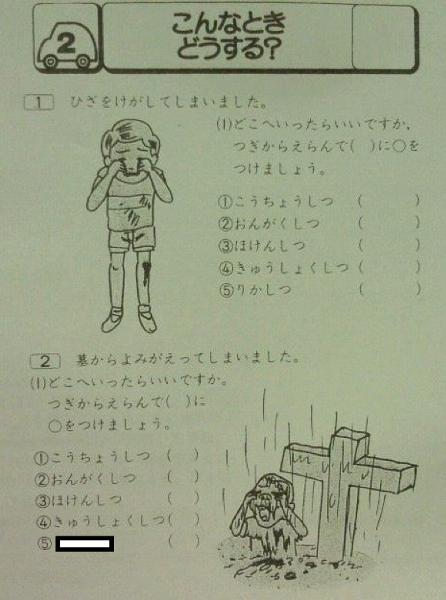 2
こんなとき
どうする?
1 ひざをけがしてしまいました。
(1)どこへいったらいいですか,
つぎからえらんで( )に○を
つけましょう。
①こうちょうしつ ( )
②おんがくしつ ( )
③ほけんしつ ( )
④きゅうしょくしつ ( )
⑤りかしつ ( )
2 墓からよみがえってしまいました。
(1)どこへいったらいいですか。
つぎからえらんで( )に
○をつけましょう。
①こうちょうしつ ( )
②おんがくしつ ( )
③ほけんしつ ( )
④きゅうしょくしつ( )
⑤ ( )